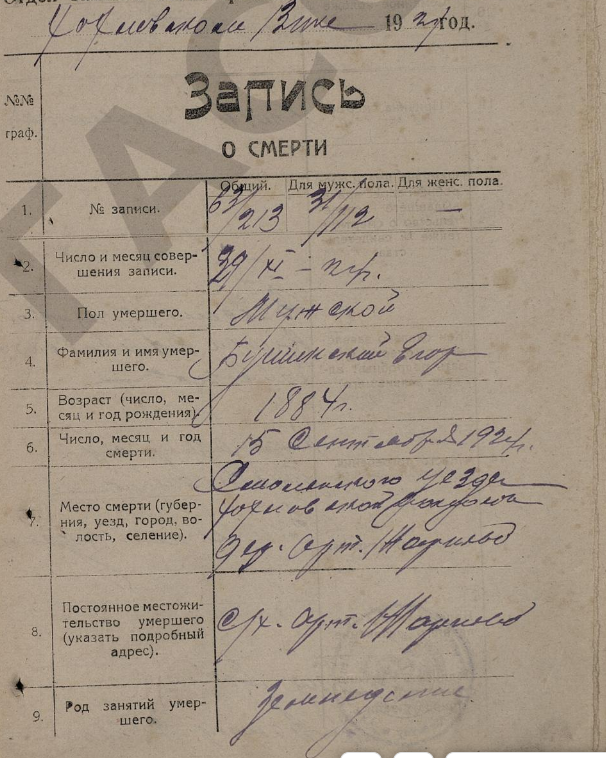 19 24 год.
№№ граф.
ЗАПИСЬ
О СМЕРТИ
Общий. Для мужс. пола. Для женс. пола.
1. № записи. 63/213 31/112 —
2. Число и месяц совер-
шения записи. 29/XI –
3. Пол умершего. Мужской
4. Фамилия и имя умер-
шего. Егор
5. Возраст (число, ме-
сяц и год рождения). 1884 г.
6. Число, месяц и год
смерти. 15 Сентября 1924 г.
7. Место смерти (губер-
ния, уезд, город, во-
лость, селение).
Смоленского уезда
Хохловской
дер. арт. Жарково
8. Постоянное местожи-
тельство умершего
(указать подробный
адрес).
с/х. арт. Жарково
9. Род занятий умер-
шего. Земледелие
ГАСО